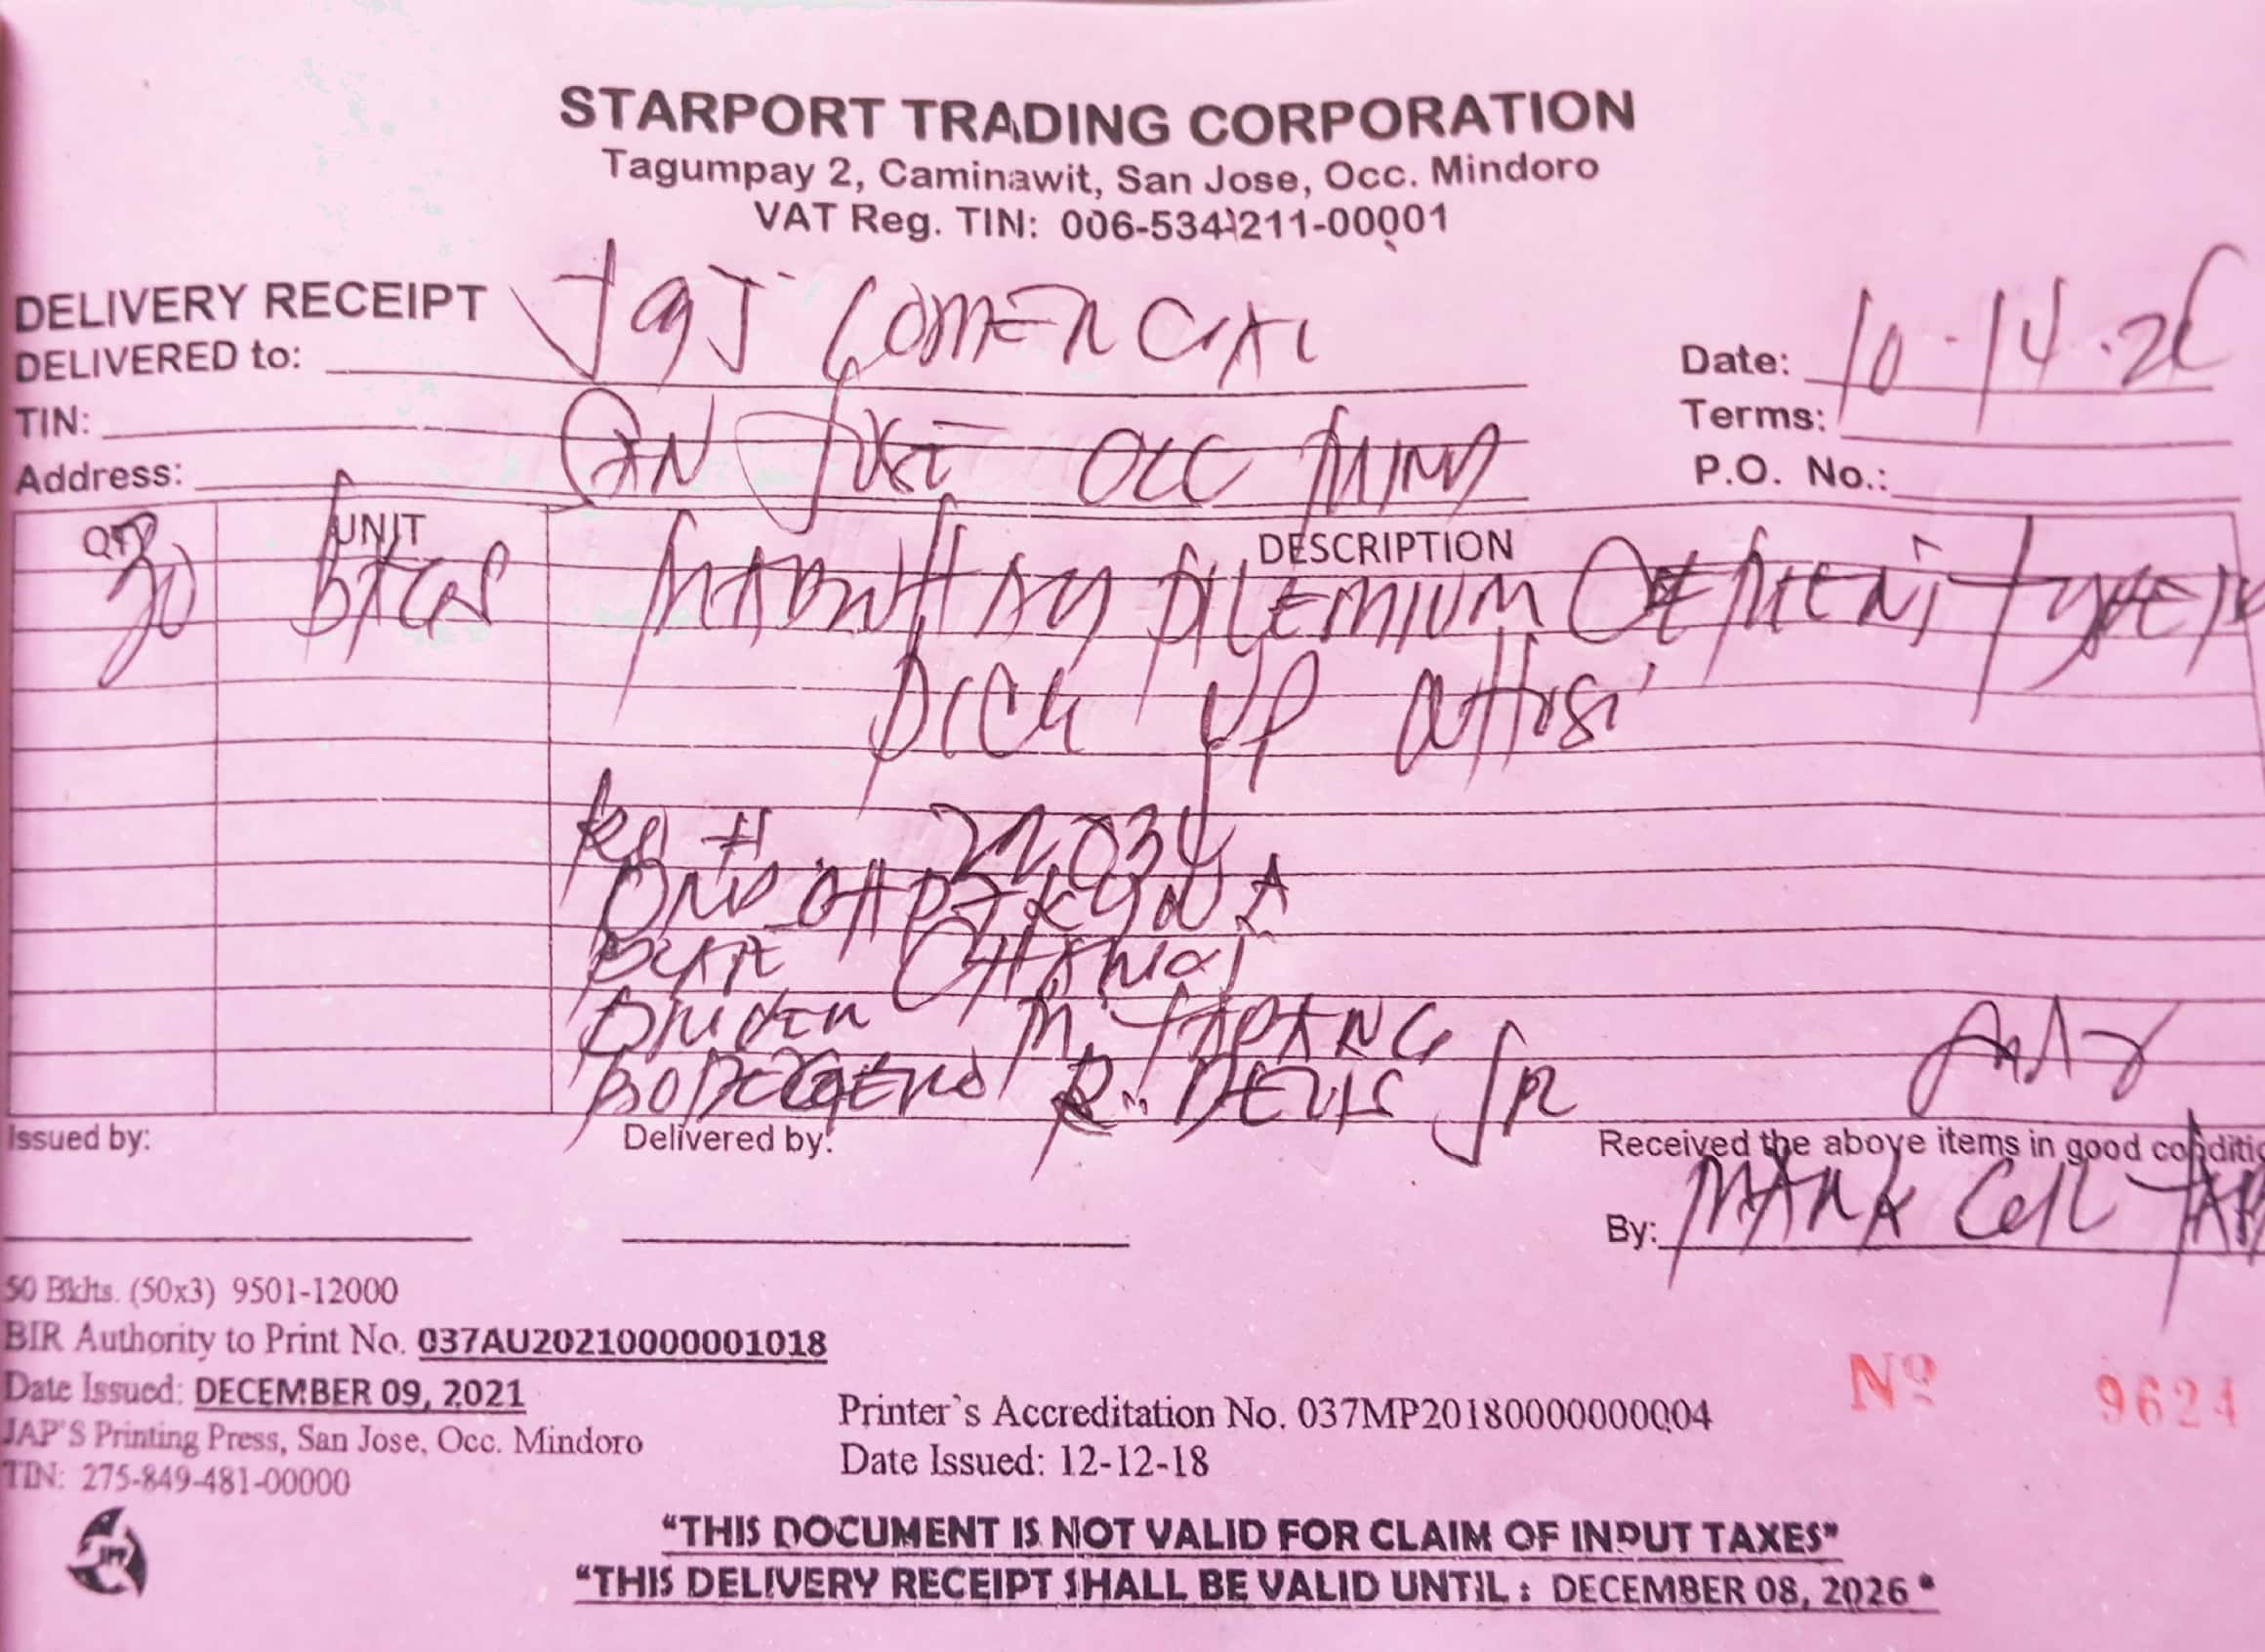 STARPORT TRADING CORPORATION
Tagumpay 2, Caminawit, San Jose, Occ. Mindoro
VAT Reg. TIN: 006-534-211-00001
DELIVERY RECEIPT
DELIVERED to: JGJ COMERCIAL
Date: 10-14-
TIN:
Terms:
Address: SAN JOSE OCC MIND
P.O. No.:
QTY UNIT DESCRIPTION
30 BAGS PREMIUM CEMENT TYPE
PICK UP
22034
DRIVER M. TAPANG
R. JR
Issued by:
Delivered by:
Received the above items in good conditi
By: MARK TAP
50 Bklts. (50x3) 9501-12000
BIR Authority to Print No. 037AU20210000001018
Date Issued: DECEMBER 09, 2021
JAP'S Printing Press, San Jose, Occ. Mindoro
TIN: 275-849-481-00000
Printer's Accreditation No. 037MP20180000000004
Date Issued: 12-12-18
Nº 9624
JPP
"THIS DOCUMENT IS NOT VALID FOR CLAIM OF INPUT TAXES"
"THIS DELIVERY RECEIPT SHALL BE VALID UNTIL : DECEMBER 08, 2026"